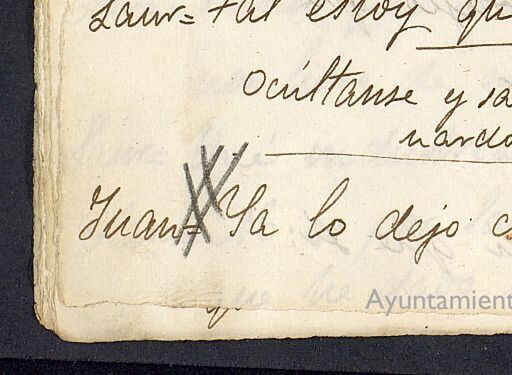 Laur= Tal estoy qu
Ocúltanse y sa
nardo
Juan= Ya lo dejo c
Ayuntamient